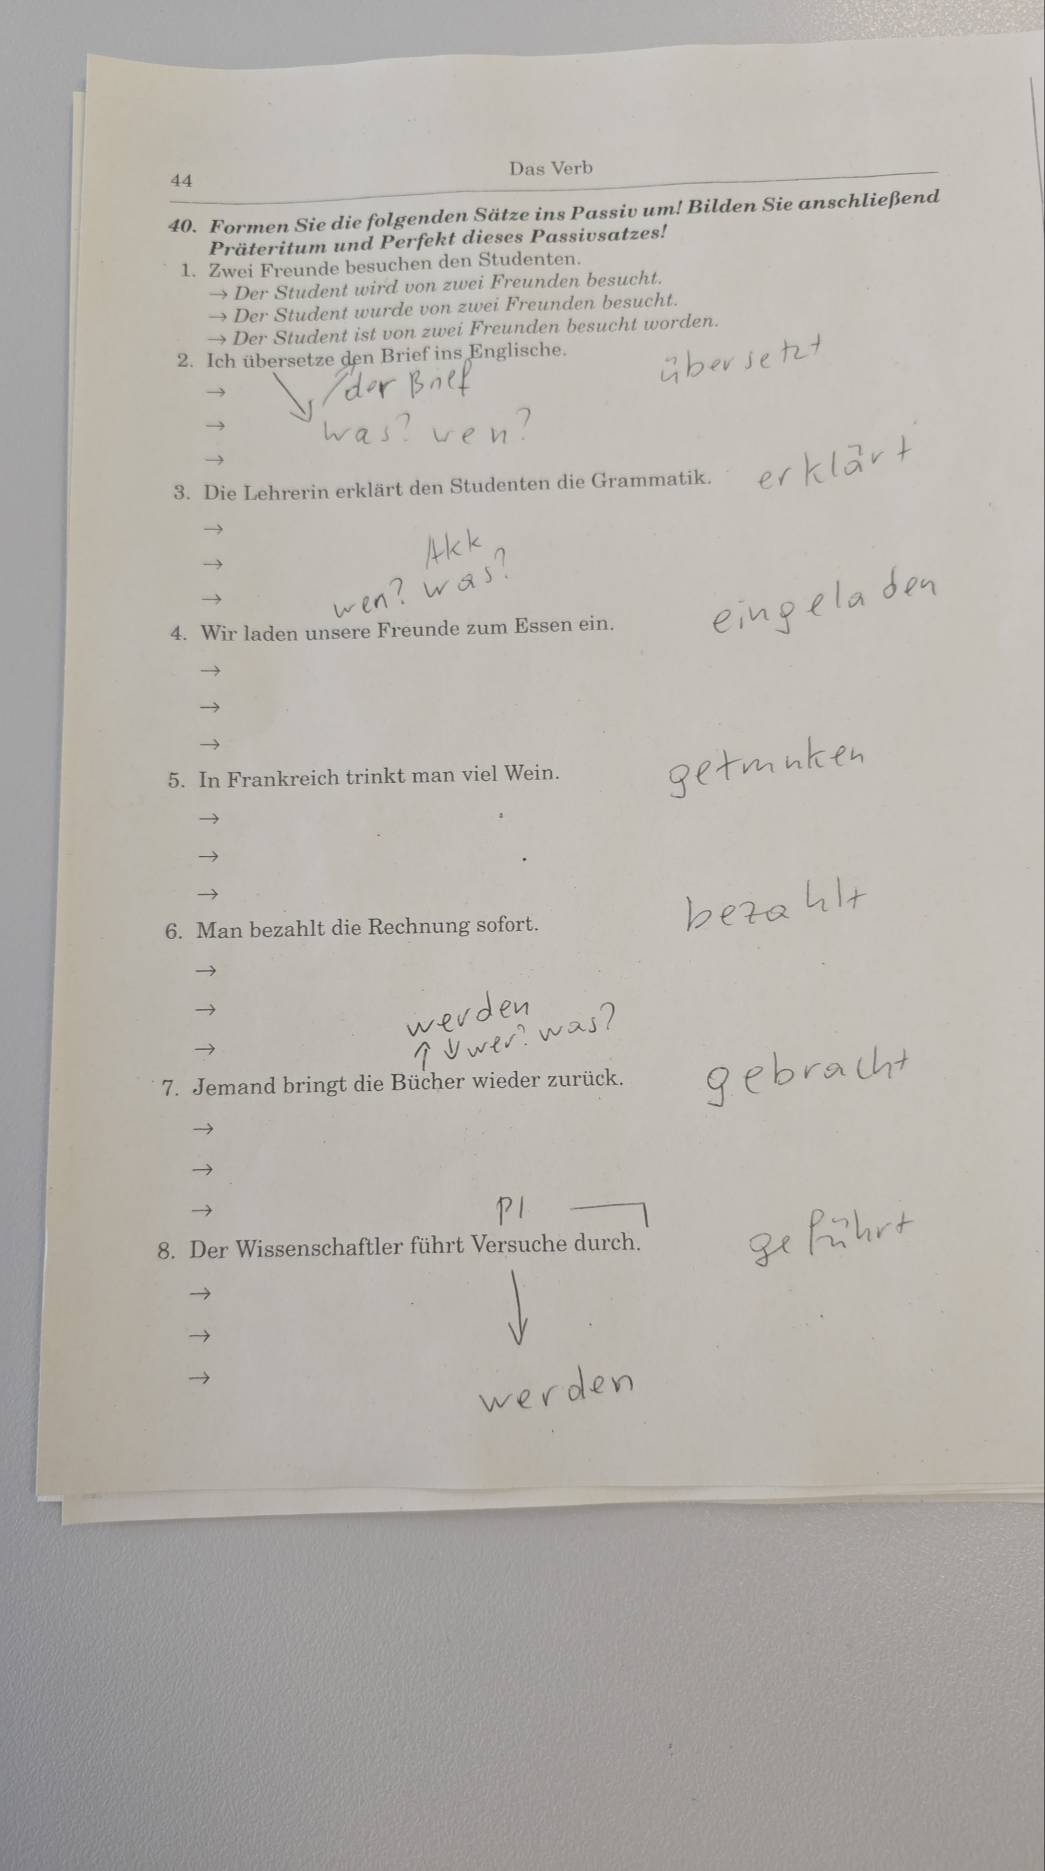 44
Das Verb
40. Formen Sie die folgenden Sätze ins Passiv um! Bilden Sie anschließend
Präteritum und Perfekt dieses Passivsatzes!
1. Zwei Freunde besuchen den Studenten.
→ Der Student wird von zwei Freunden besucht.
→ Der Student wurde von zwei Freunden besucht.
→ Der Student ist von zwei Freunden besucht worden.
2. Ich übersetze den Brief ins Englische.
übersetzt
→ der Brief
→ was? wen?
→
3. Die Lehrerin erklärt den Studenten die Grammatik.
erklärt
→
→ Akk
→ wen? was?
4. Wir laden unsere Freunde zum Essen ein.
eingeladen
→
→
→
5. In Frankreich trinkt man viel Wein.
getrunken
→
→
→
6. Man bezahlt die Rechnung sofort.
bezahlt
→
→ werden
→ ↑ ↓ wer? was?
7. Jemand bringt die Bücher wieder zurück.
gebracht
→
→
→ Pl
8. Der Wissenschaftler führt Versuche durch.
geführt
→
→
→ werden